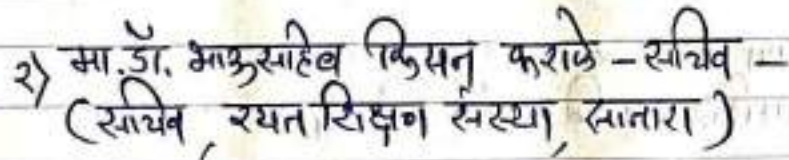 २) मा. डॉ. भाऊसाहेब किसन कराळे - सचिव -
(सचिव, रयत शिक्षण संस्था, सातारा)